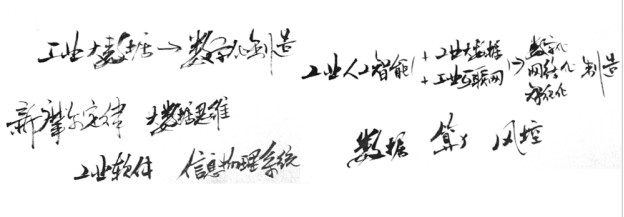 工业大数据→数字化制造
新摩尔定律 大数据思维
工业软件 信息物理系统
工业人工智能(+工业大数据
+工业互联网)→数字化
网络化 制造
智能化
数据 算力 风控